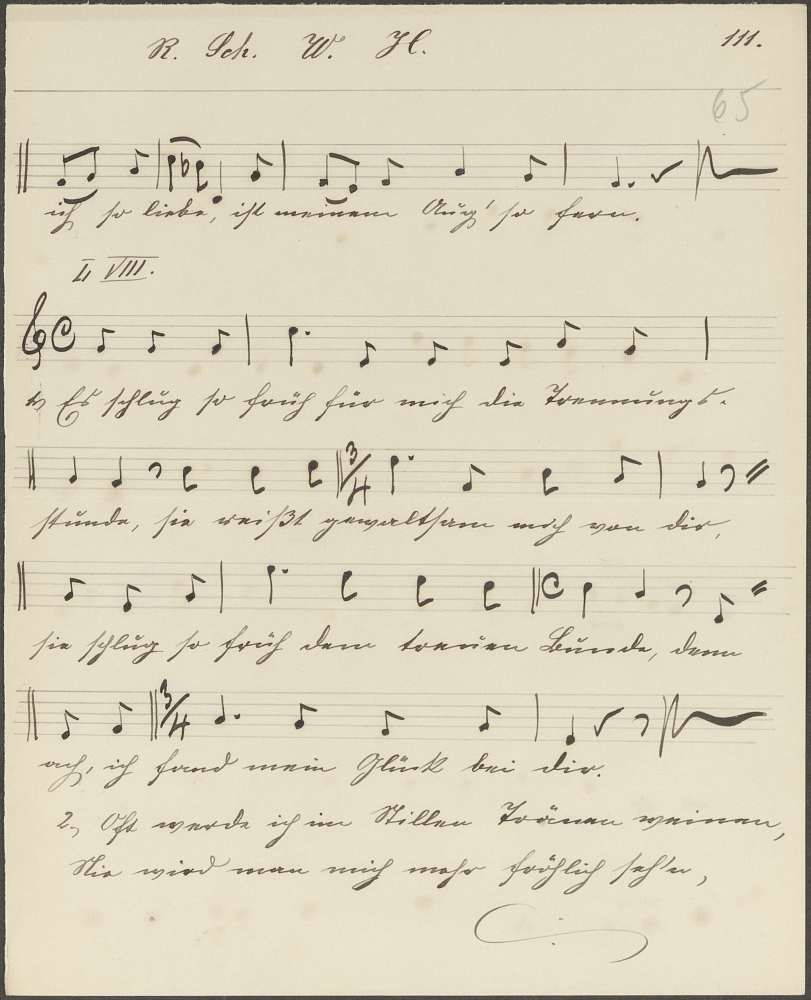 R. Sch. W. H. 111.
65
ich so liebe, ist meinem Aug' so fern.
L VIII.
C
1, Es schlug so früh für mich die Trennungs-
3/4
stunde, sie reißt gewaltsam mich von dir,
C
sie schlug so früh dem treuen Bunde, denn
3/4
ach, ich fand mein Glück bei dir.
2, Oft werde ich im Stillen Tränen weinen,
Nie wird man mich mehr fröhlich seh'n,